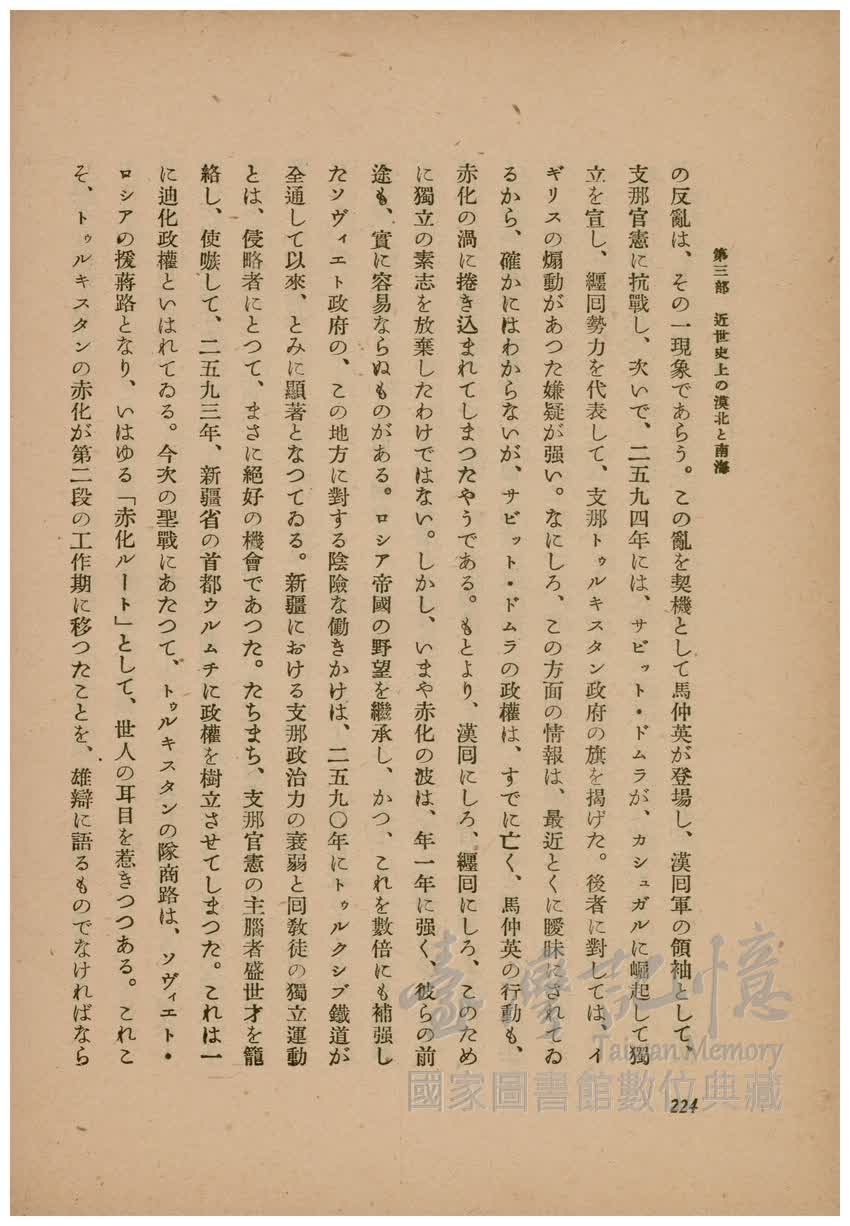 第三部　近世史上の漠北と南海
の反亂は、その一現象であらう。この亂を契機として馬仲英が登場し、漢囘軍の領袖として、
支那官憲に抗戰し、次いで、二五九四年には、サビット・ドムラが、カシュガルに崛起して獨
立を宣し、纒囘勢力を代表して、支那トゥルキスタン政府の旗を揭げた。後者に對しては、イ
ギリスの煽動があつた嫌疑が强い。なにしろ、この方面の情報は、最近とくに曖昧にされてゐ
るから、確かにはわからないが、サビット・ドムラの政權は、すでに亡く、馬仲英の行動も、
赤化の渦に捲き込まれてしまつたやうである。もとより、漢囘にしろ、纒囘にしろ、このため
に獨立の素志を放棄したわけではない。しかし、いまや赤化の波は、年一年に强く、彼らの前
途も、實に容易ならぬものがある。ロシア帝國の野望を繼承し、かつ、これを數倍にも補强し
たソヴィエト政府の、この地方に對する陰險な働きかけは、二五九〇年にトゥルクシブ鐵道が
全通して以來、とみに顯著となつてゐる。新疆における支那政治力の衰弱と囘敎徒の獨立運動
とは、侵略者にとつて、まさに絕好の機會であつた。たちまち、支那官憲の主腦者盛世才を籠
絡し、使嗾して、二五九三年、新疆省の首都ウルムチに政權を樹立させてしまつた。これは一
に迪化政權といはれてゐる。今次の聖戰にあたつて、トゥルキスタンの隊商路は、ソヴィエト・
ロシアの援蔣路となり、いはゆる「赤化ルート」として、世人の耳目を惹きつつある。これこ
そ、トゥルキスタンの赤化が第二段の工作期に移つたことを、雄辯に語るものでなければなら
224
臺灣記憶
Taiwan Memory
國家圖書館數位典藏